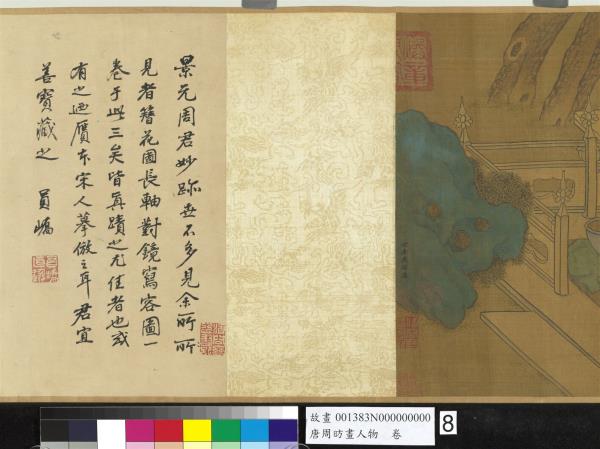 景元周君妙跡世不多見余所所
見者簪花圖長軸對鏡寫容圖一
卷于此三矣皆真蹟之尤佳者也或
有之迺贋本宋人摹倣之耳君宜
善寶藏之 員嶠
故畫 001383N000000000
唐周昉畫人物 卷
8